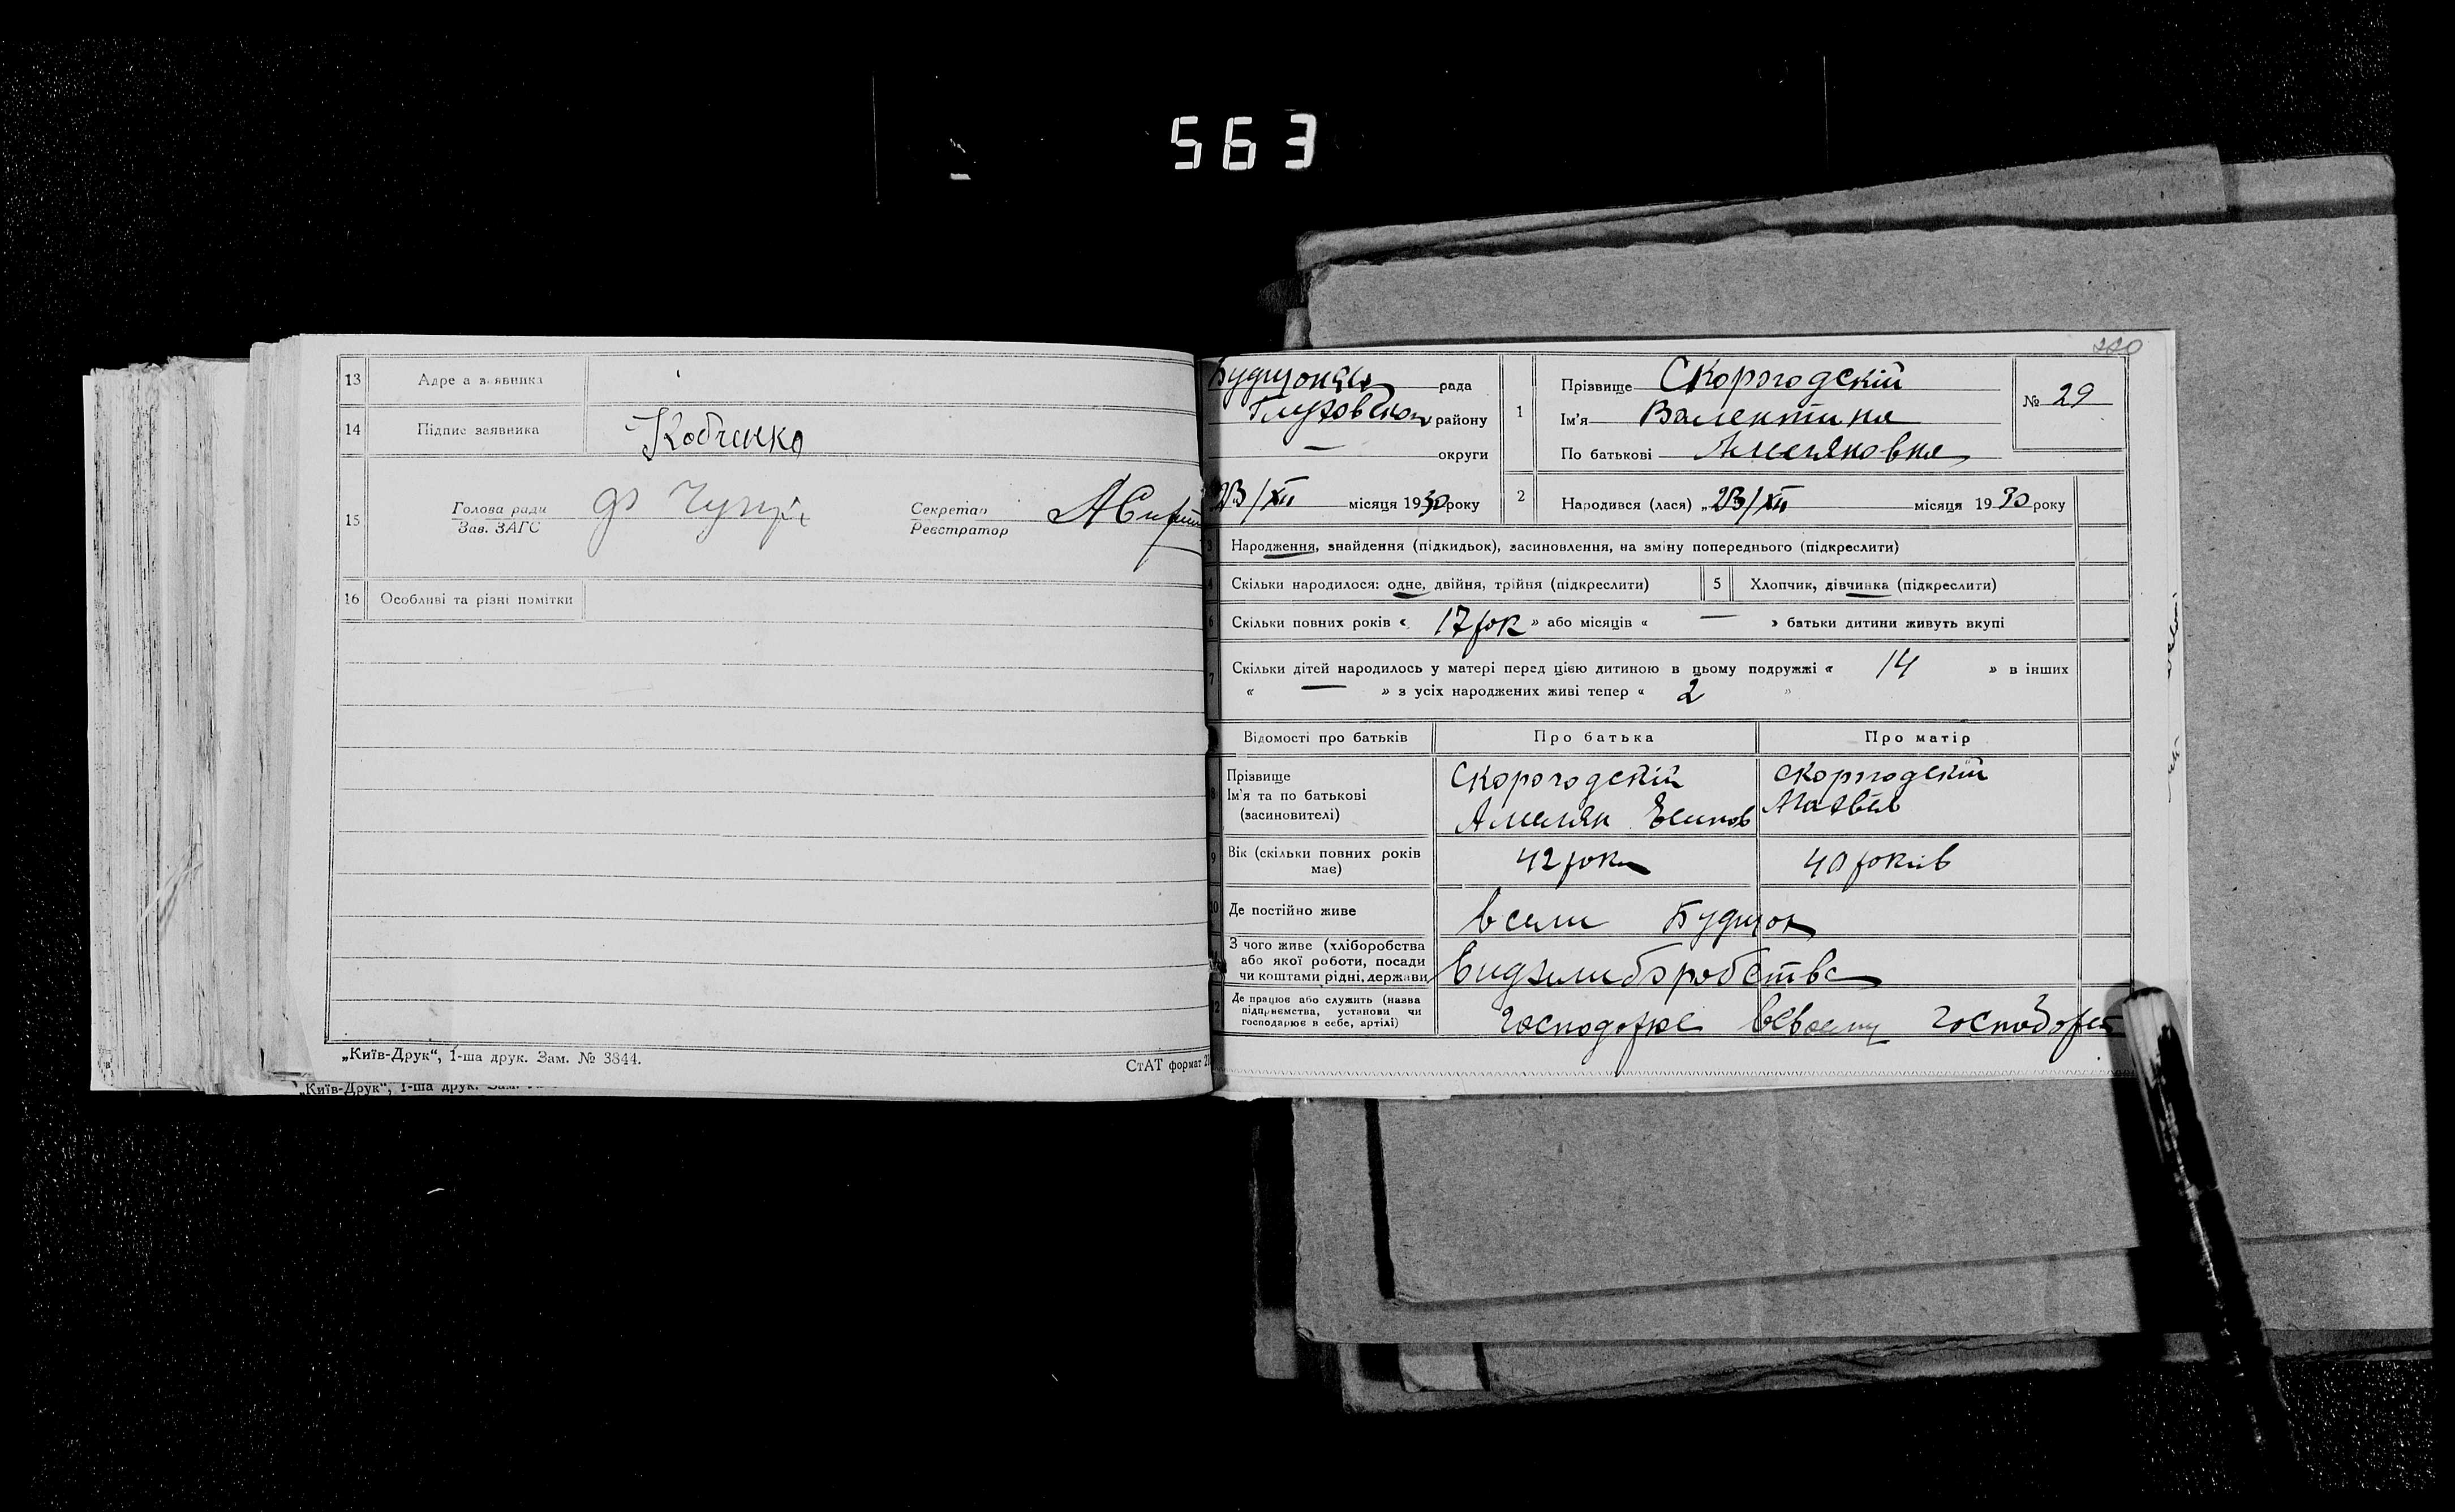 563
13 Адреса заявника
14 Підпис заявника Кобченко
15 Голова ради
Зав. ЗАГС
Секретар
Реєстратор
16 Особливі та різні помітки
„Київ-Друк“, 1-ша друк. Зам. № 3844.
СтАТ формат
„Київ-Друк“, 1-ша друк. Зам.
220
рада
району
— округи
23/XII місяця 1930 року
1 Прізвище Скорогодскій
Ім'я Валентина
По батькові Амеляновна
№ 29
2 Народився (лася) „23/XII місяця 1930 року
3 Народження, знайдення (підкидьок), засиновлення, на зміну попереднього (підкреслити)
4 Скільки народилося: одне, двійня, трійня (підкреслити) 5 Хлопчик, дівчинка (підкреслити)
6 Скільки повних років « 17 рок » або місяців « — » батьки дитини живуть вкупі
7 Скільки дітей народилось у матері перед цією дитиною в цьому подружжі « 14 » в інших
« — » з усіх народжених живі тепер « 2 »
Відомості про батьків Про батька Про матір
8 Прізвище
Ім'я та по батькові
(засиновителі)
Скорогодскій
Амелян
Скорогодскій
9 Вік (скільки повних років
має)
42 роки 40 років
10 Де постійно живе в сели Будищах
З чого живе (хліборобства
або якої роботи, посади
чи коштами рідні, держави
12 Де працює або служить (назва
підприємства, установи чи
господарює в себе, артілі)